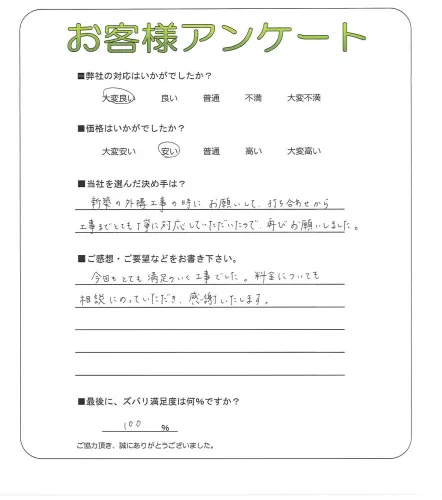 お客様アンケート
■弊社の対応はいかがでしたか？
大変良い 良い 普通 不満 大変不満
■価格はいかがでしたか？
大変安い 安い 普通 高い 大変高い
■当社を選んだ決め手は？
新築の外構工事の時にお願いして、打ち合わせから
工事までとても丁寧に対応していただいたので、再びお願いしました。
■ご感想・ご要望などをお書き下さい。
今回もとても満足のいく工事でした。料金についても
相談にのっていただき、感謝いたします。
■最後に、ズバリ満足度は何％ですか？
100 ％
ご協力頂き、誠にありがとうございました。